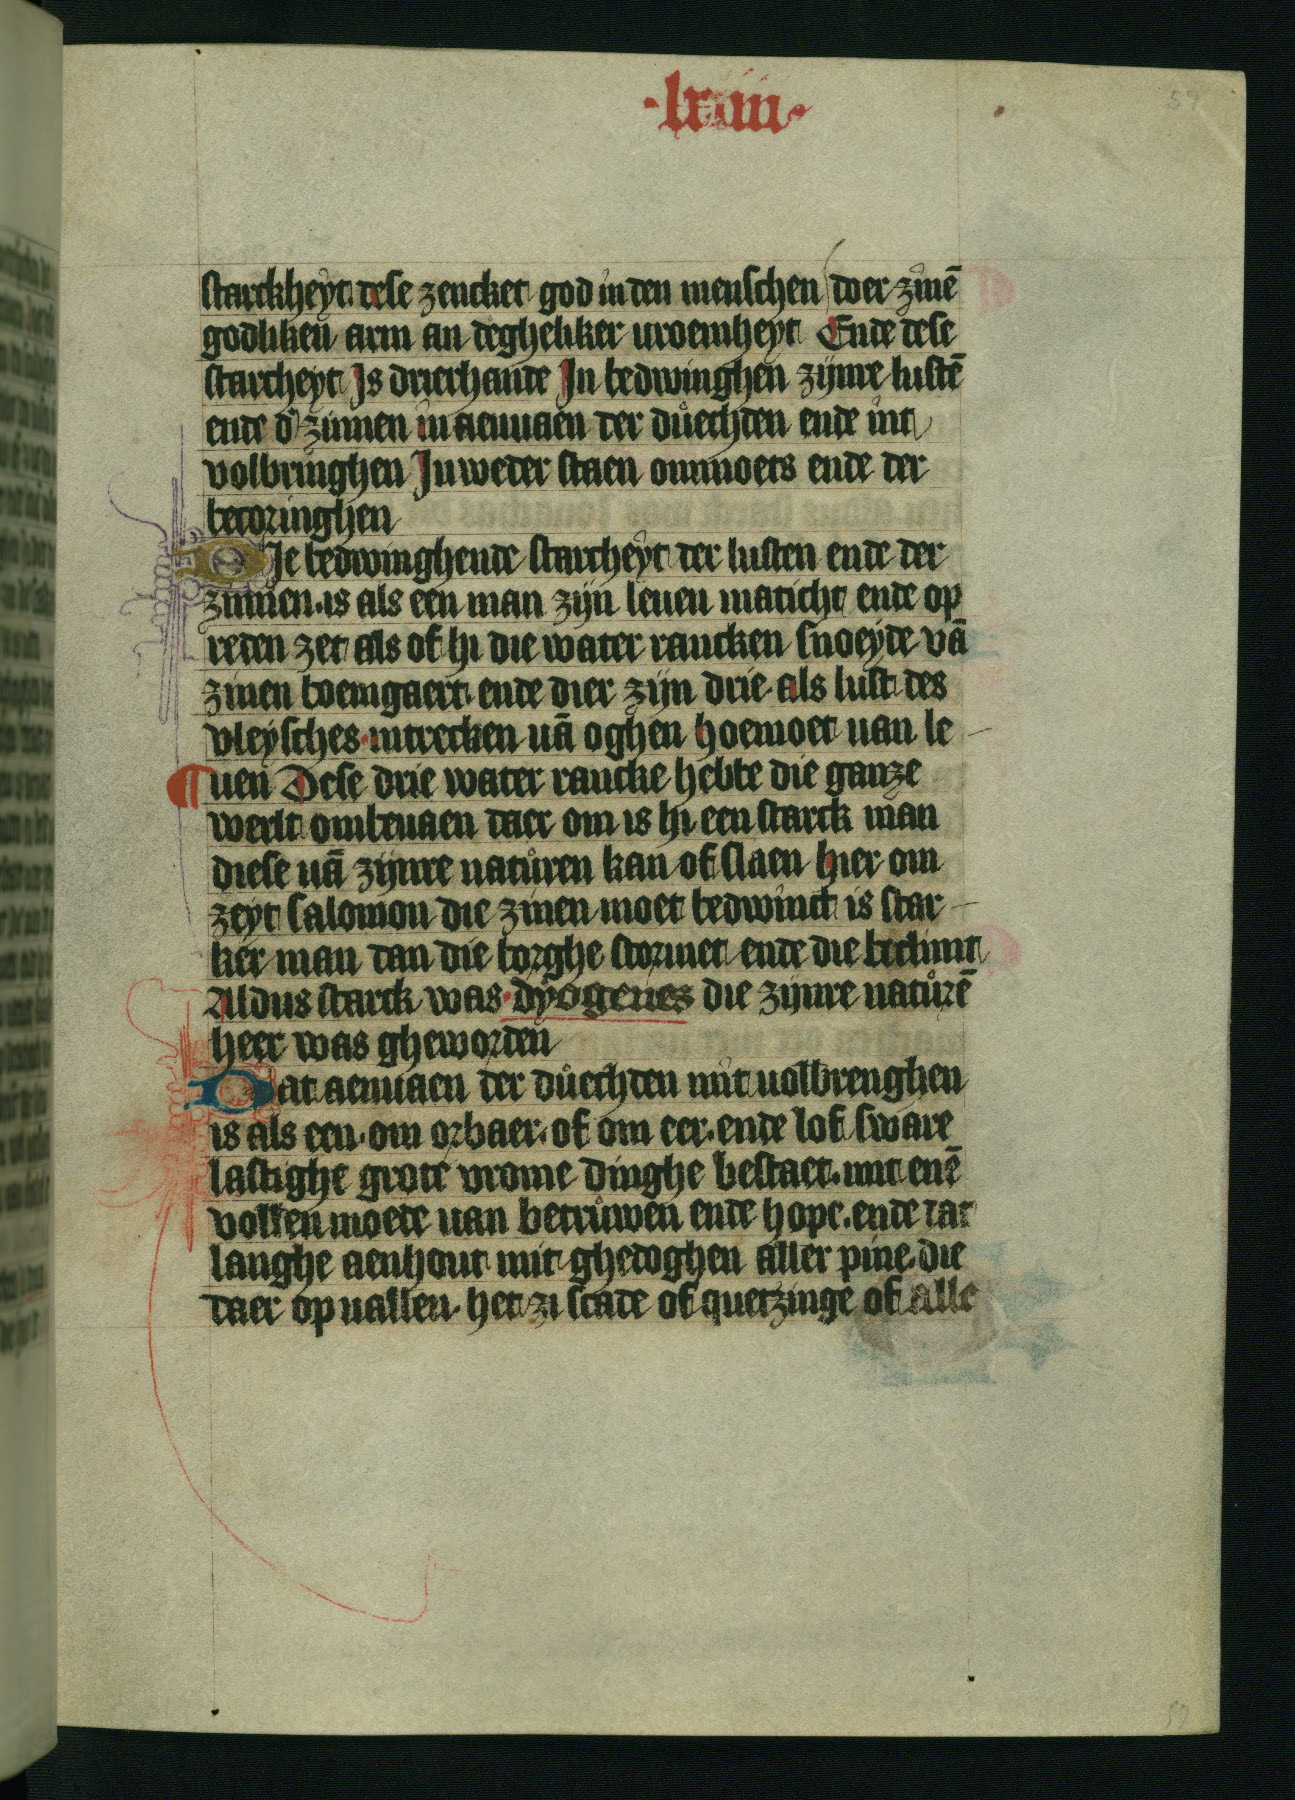 ·lxiiii·
59
starckheyt dese zencket god in den menschen doer zinē
godliken arm an degheliker uroemheyt Ende dese
starcheyt Is drierhande In bedwinghen zijnre lustē
ende d' zinnen in aenuaen der duechden ende int
volbringhen In weder staen onmoets ende der
becoringhen
DJe bedwinghende starcheyt der lusten ende der
zinnen·is als een man zijn leuen maticht ende op
reden zet als of hi die water rancken snoeyde vā
zinen boemgaert ende dier zijn drie·als lust des
vleysches·intrecken uā oghen hoemoet uan le-
¶ uen Dese drie water rancke hebbe die ganze
werlt ombeuaen daer om is hi een starck man
diese uā zijnre natůren kan of slaen hier om
zeyt salomon die zinen moet bedwinct is star-
ker man dan die borghe stormet ende die beclimt
Aldus starck was·dyogenes die zijnre natůrē
heer was gheworden
Dat aenuaen der důechden mit uolbrenghen
is als een·om orbaer·of om eer·ende lof sware
lastighe grote vrome dinghe bestaet·mit enē
vollen moede uan betrůwen ende hope·ende dat
langhe aenhout mit ghedoghen aller pine·die
daer op uallen·het zi scade of quetzinge of alle
59